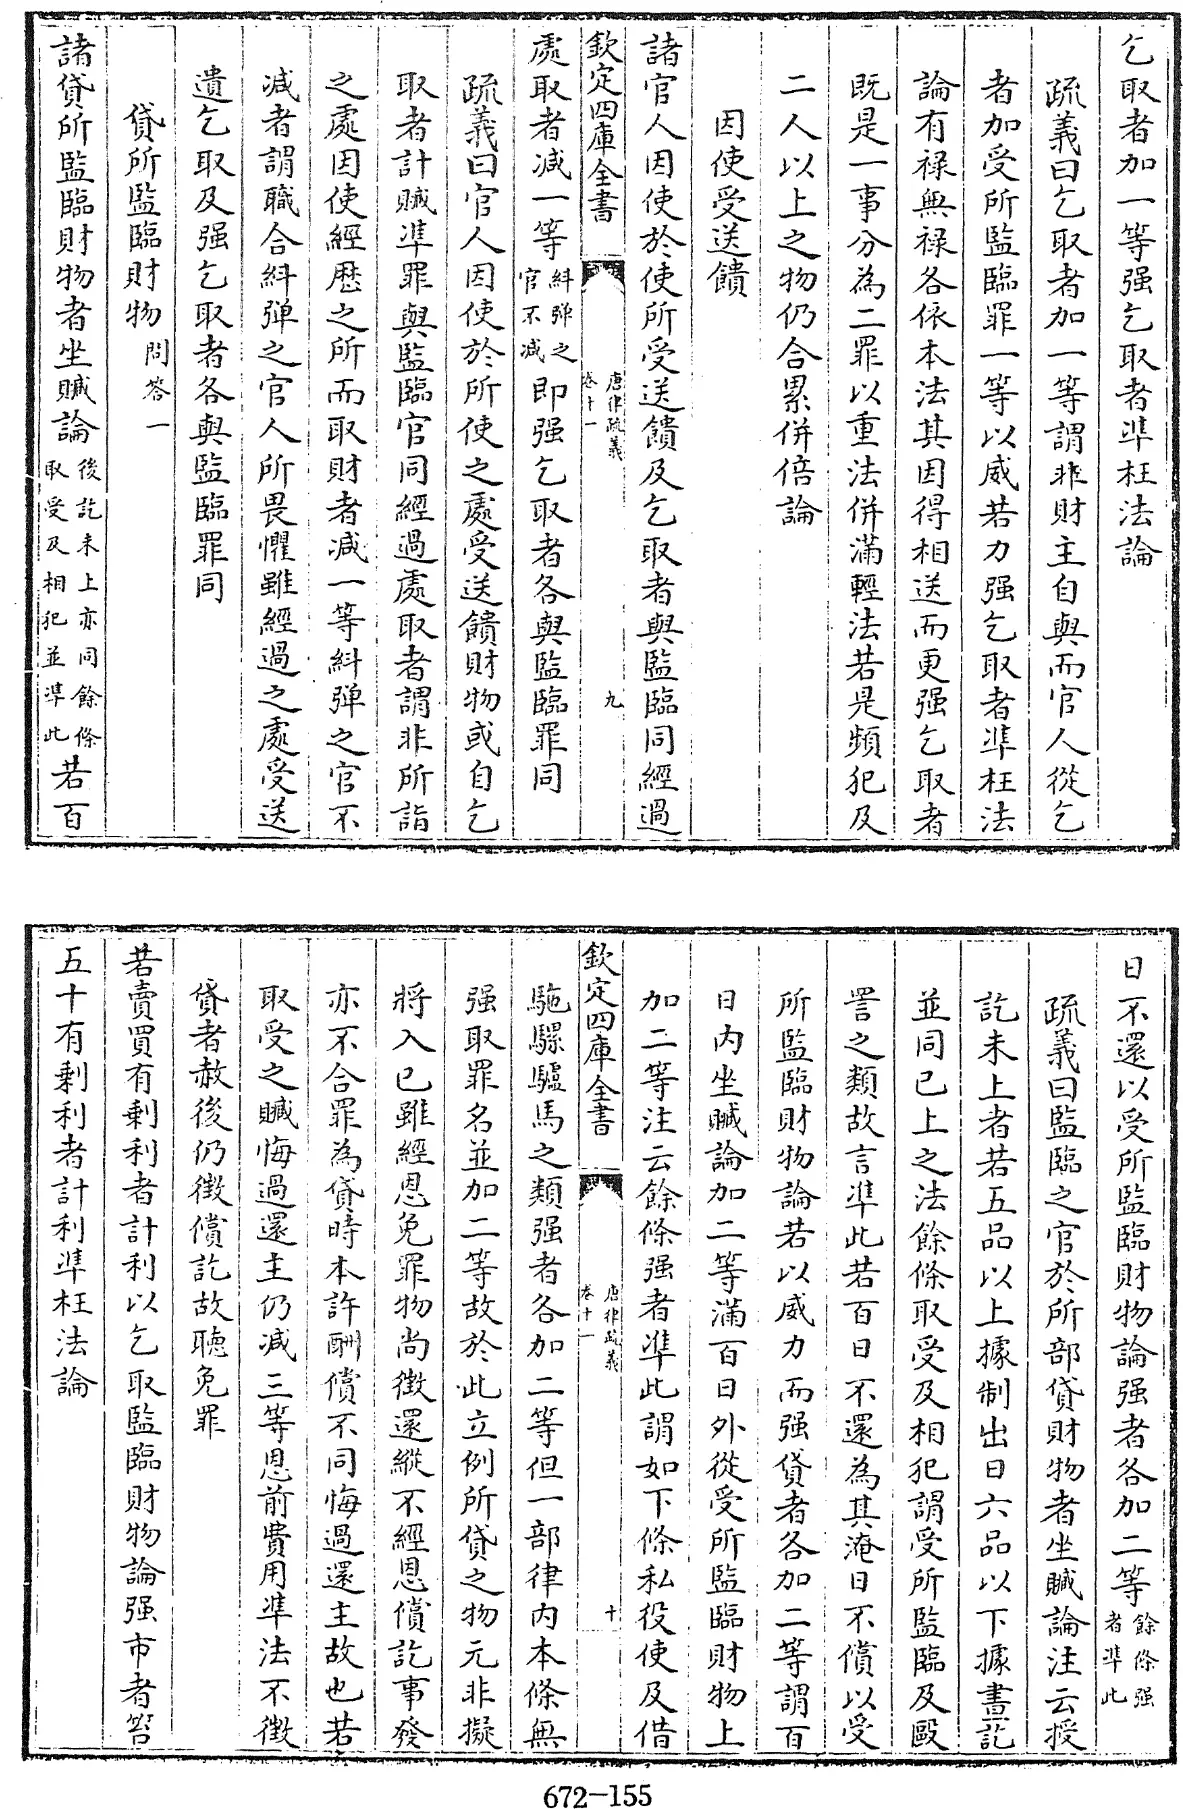 乞取者加一等强乞取者準枉法論
疏義曰乞取者加一等謂非財主自與而官人從乞
者加受所監臨罪一等以威若力强乞取者準枉法
論有禄無禄各依本法其因得相送而更强乞取者
既是一事分為二罪以重法併滿輕法若是頻犯及
二人以上之物仍合累併倍論
因使受送饋
諸官人因使於使所受送饋及乞取者與監臨同經過
欽定四庫全書
唐律疏義
卷十一
九
處取者减一等糾弾之官不减即强乞取者各與監臨罪同
疏義曰官人因使於所使之處受送饋財物或自乞
取者計贓準罪與監臨官同經過處取者謂非所詣
之處因使經歴之所而取財者减一等糾弾之官不
减者謂職合糾弾之官人所畏懼雖經過之處受送
遺乞取及强乞取者各與監臨罪同
貸所監臨財物問答一
諸貸所監臨財物者坐贓論後訖未上亦同餘條取受及相犯並準此若百
日不還以受所監臨財物論强者各加二等餘條强者準此
疏義曰監臨之官於所部貸財物者坐贓論注云授
訖未上者若五品以上據制出日六品以下據畫訖
並同已上之法餘條取受及相犯謂受所監臨及毆
詈之類故言準此若百日不還為其淹日不償以受
所監臨財物論若以威力而强貸者各加二等謂百
日内坐贓論加二等滿百日外從受所監臨財物上
加二等注云餘條强者準此謂如下條私役使及借
欽定四庫全書
唐律疏義
卷十一
十
駞騾驢馬之類强者各加二等但一部律内本條無
强取罪名並加二等故於此立例所貸之物元非擬
將入已雖經恩免罪物尚徴還縱不經恩償訖事發
亦不合罪為貸時本許酬償不同悔過還主故也若
取受之贓悔過還主仍减三等恩前費用準法不徴
貸者赦後仍徴償訖故聴免罪
若賣買有剰利者計利以乞取監臨財物論强市者笞
五十有剰利者計利準枉法論
672-155